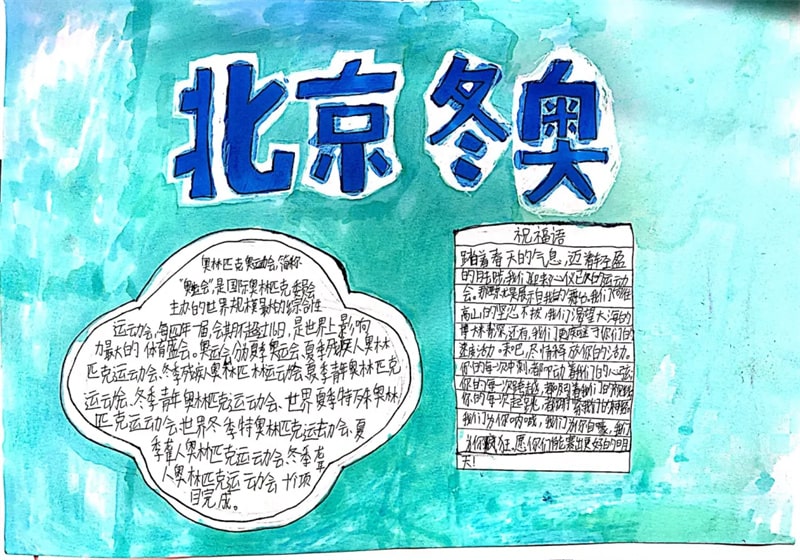 北京冬奥
奥林匹克奥运动会,简称
"奥运会",是国际奥林匹克委员会
主办的世界规模最大的综合性
运动会,每四年一届,会期不超过16日,是世界上影响
力最大的体育盛会。奥运会分为夏季奥运会、夏季残疾人奥林
匹克运动会、冬季残疾人奥林匹林运动会、夏季青年奥林匹克
运动会、冬季青年奥林匹克运动会、世界夏季特殊奥林
匹克运动会、世界冬季特奥林匹克运动会、夏
季聋人奥林匹克运动会、冬季聋
人奥林匹克运动会十项
目完成。
祝福语
踏着春天的气息,迈着轻盈
的
我们迎来了心仪已久的运动
会。
是展示自我的舞台,我们
高山的坚忍不拔,我们渴望大海的
还有,我们更
于你们的
来吧,尽情释放你的活力。
你的每一次冲刺,都叩动着我们的心弦;
你的每一次跨越,都
着我们的
你的每一次起跳,都
我们的
我们为你呐喊,我们为你
我们
为你疯狂。愿你们能
出更好的明
天!